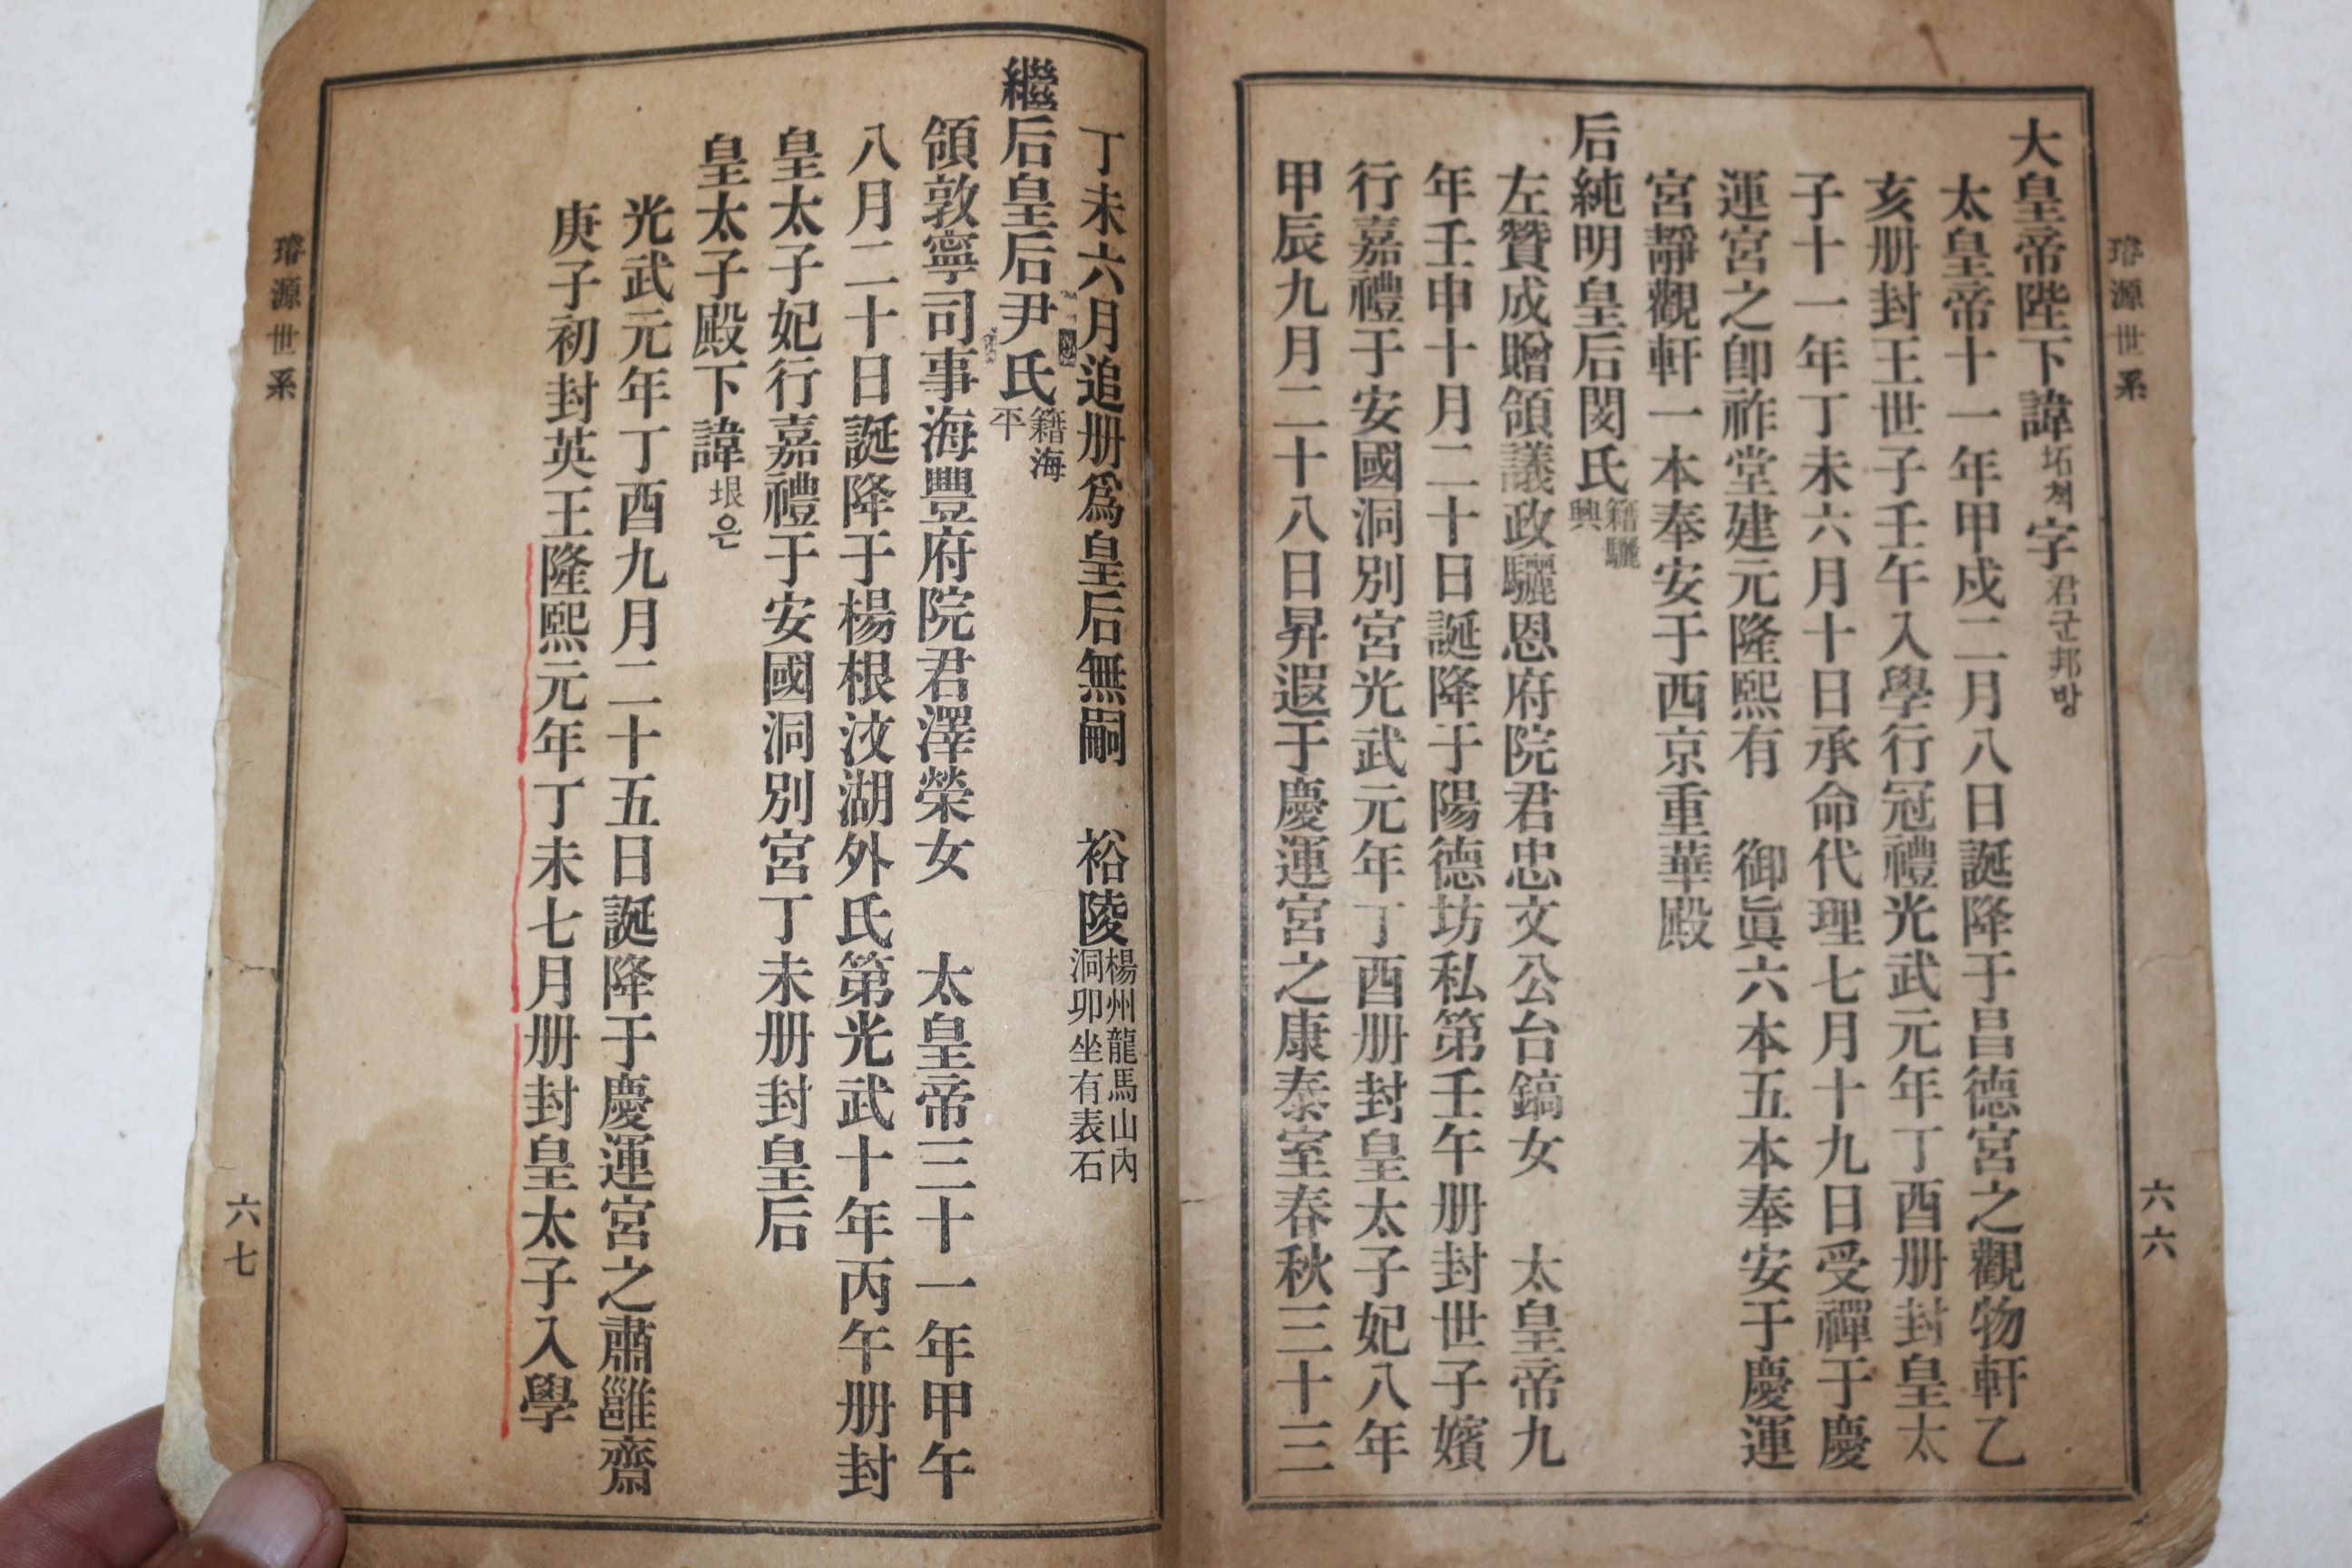 璿源世系
六六
大皇帝陛下諱坧척字君군邦방
太皇帝十一年甲戌二月八日誕降于昌德宮之觀物軒乙
亥册封王世子壬午入學行冠禮光武元年丁酉册封皇太
子十一年丁未六月十日承命代理七月十九日受禪于慶
運宮之卽祚堂建元隆熙有 御眞六本五本奉安于慶運
宮靜觀軒一本奉安于西京重華殿
后純明皇后閔氏籍驪興
左贊成贈領議政驪恩府院君忠文公台鎬女 太皇帝九
年壬申十月二十日誕降于陽德坊私第壬午册封世子嬪
行嘉禮于安國洞別宮光武元年丁酉册封皇太子妃八年
甲辰九月二十八日昇遐于慶運宮之康泰室春秋三十三
丁未六月追册爲皇后無嗣 裕陵楊州龍馬山內洞卯坐有表石
繼后皇后尹氏籍海平
領敦寧司事海豐府院君澤榮女 太皇帝三十一年甲午
八月二十日誕降于楊根汶湖外氏第光武十年丙午册封
皇太子妃行嘉禮于安國洞別宮丁未册封皇后
皇太子殿下諱垠은
光武元年丁酉九月二十五日誕降于慶運宮之肅雝齋
庚子初封英王隆熙元年丁未七月册封皇太子入學
璿源世系
六七